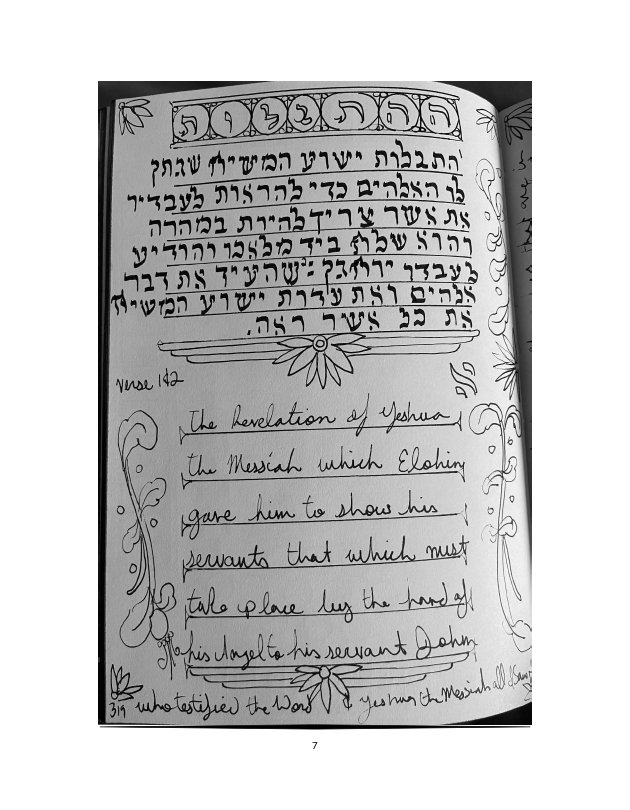 ההתגלות
התגלות ישוע המשיח שנתן
לו האלהים כדי להראות לעבדיו
את אשר צריך להיות במהרה
והוא שלח ביד מלאכו והודיע
לעבדו יוחנן שהעיד את דבר
אלהים ואת עדות ישוע המשיח
את כל אשר ראה.
verse 1&2
the Revelation of Yeshua
the Messiah which Elohim
gave him to show his
servants that which must
take place by the hand of
his Angel to his servant John
319 who testified the Word & Yeshua the Messiah all
7